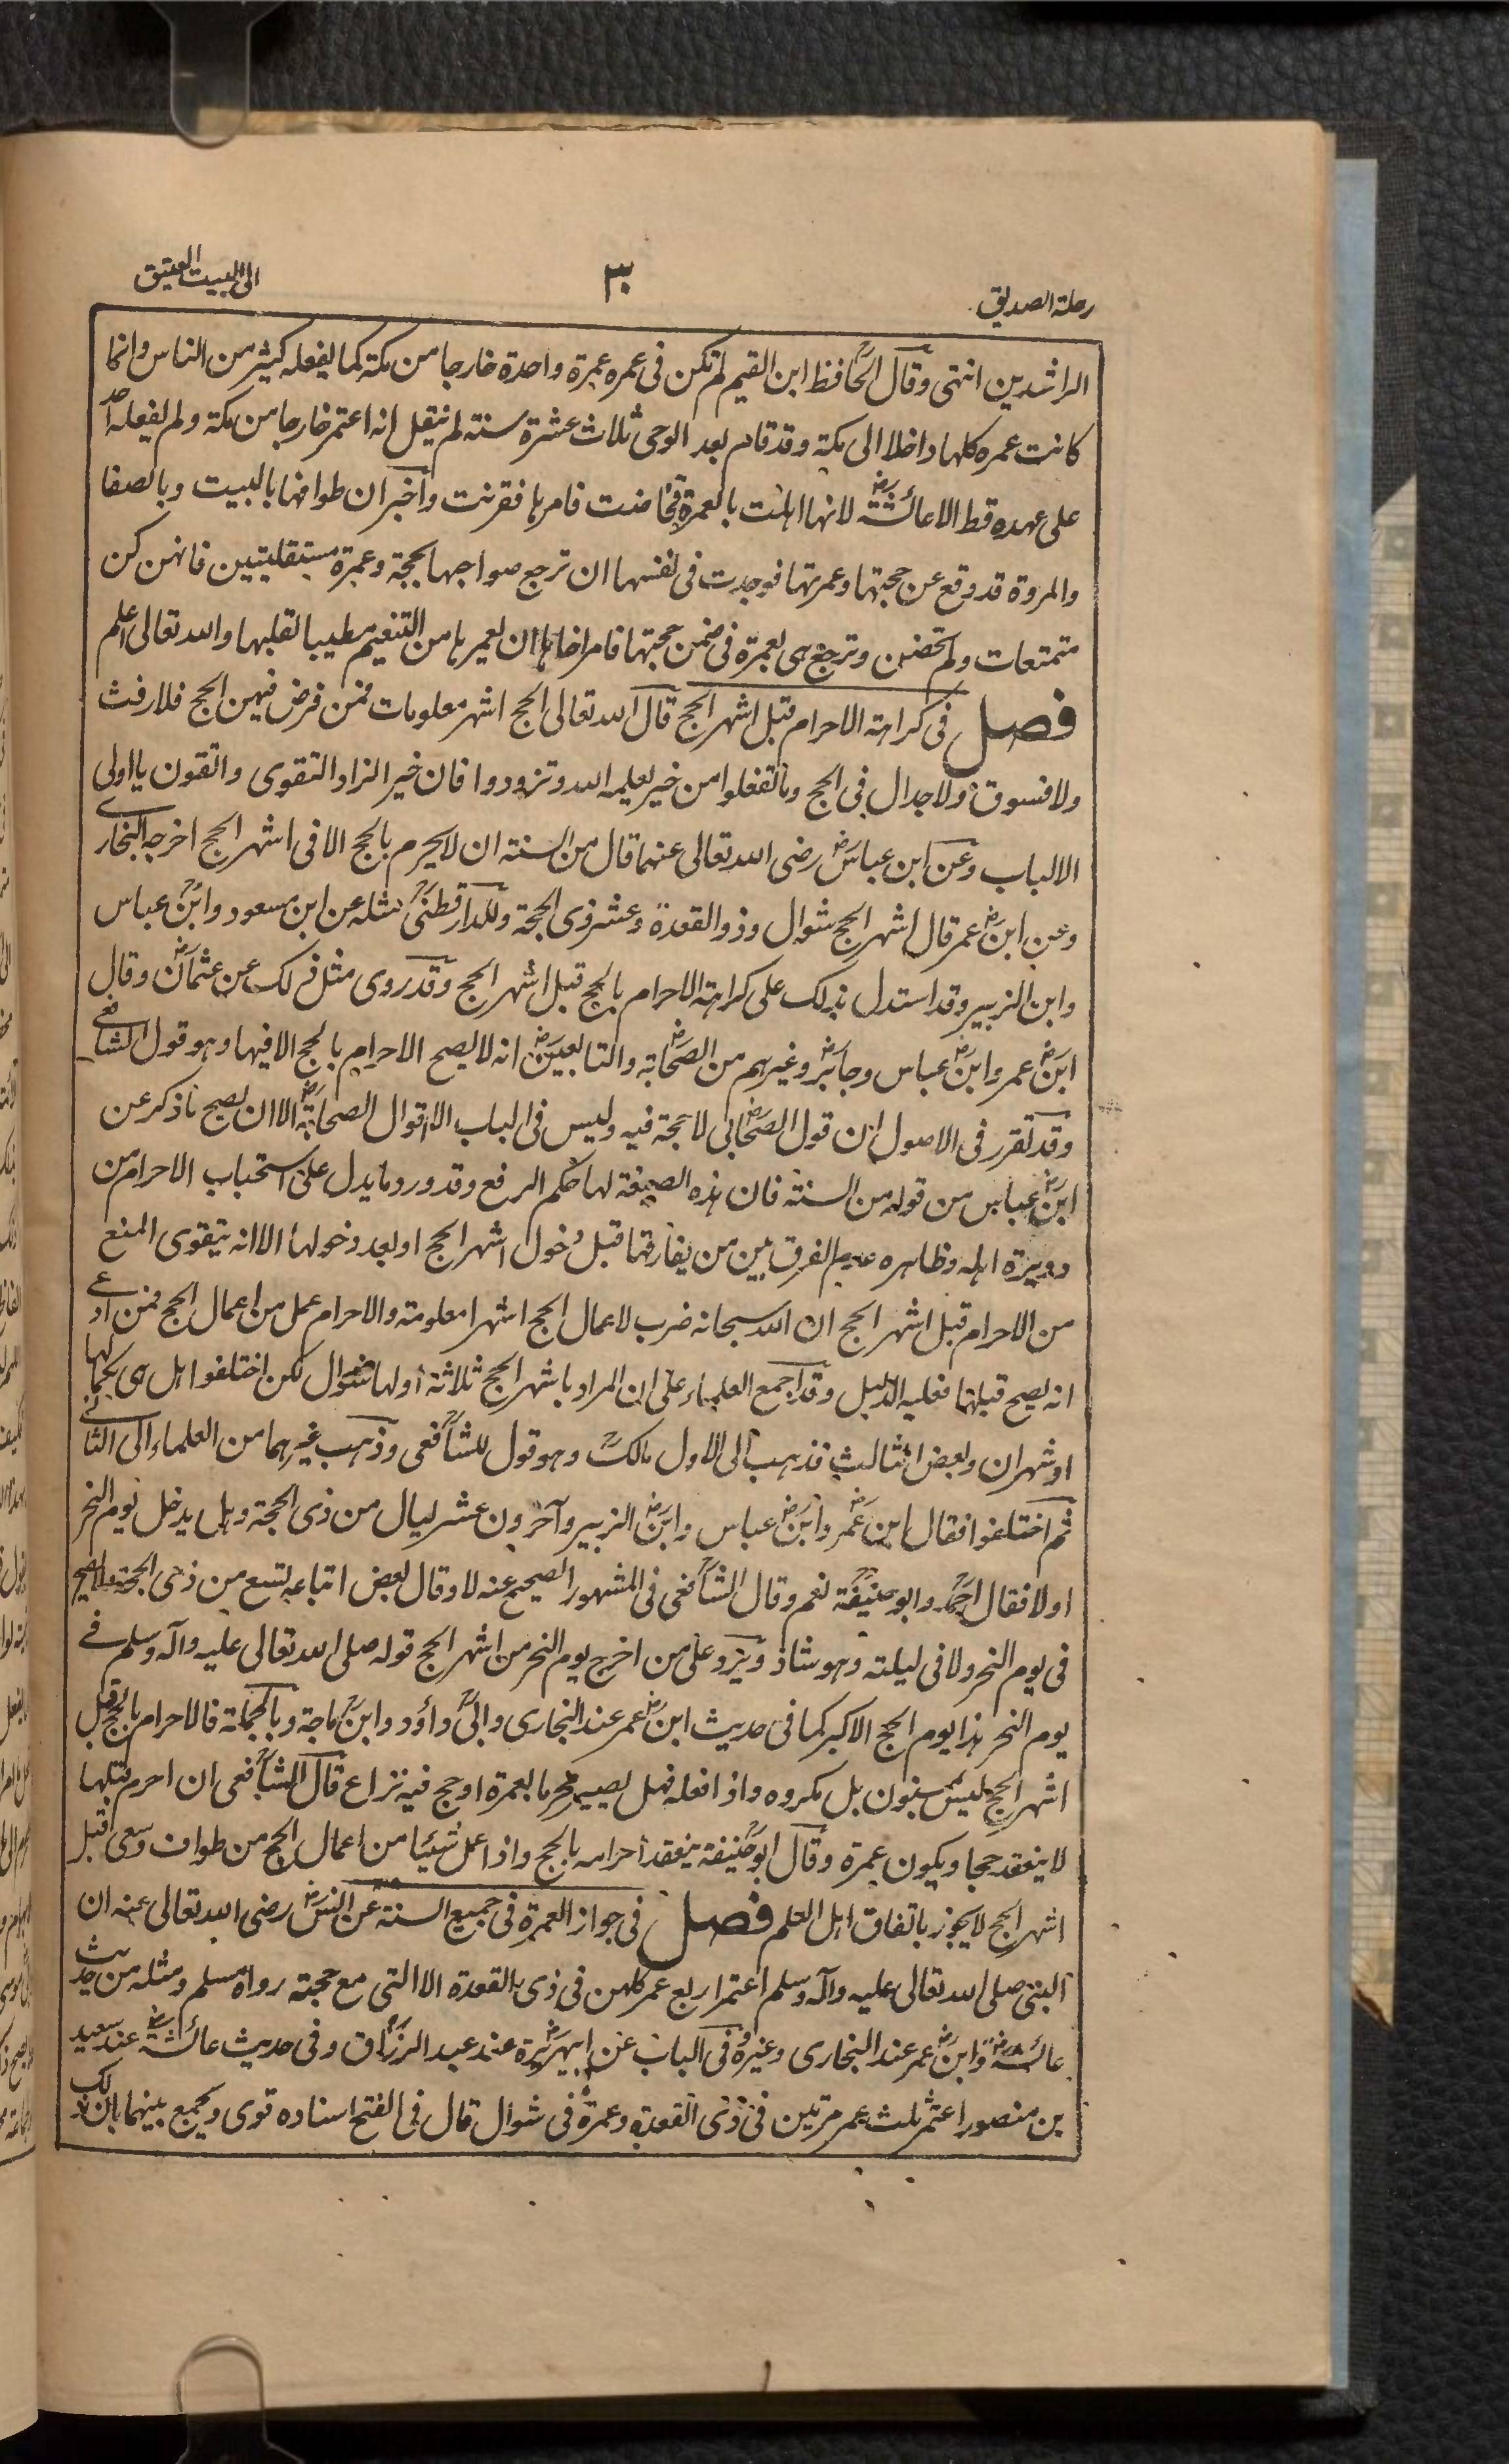 رحلة الصديق
٣
الى البيت العتيق
الراشدين انتهى وقال الحافظ ابن القيم لم تكن فى عمره عمرة واحدة خارجا من مكة كما يفعله كثير من الناس وانما
كانت عمره كلها داخلا الى مكة وقد قام بعد الوحى ثلاث عشرة سنة لم ينقل انه اعتمر خارجا من مكة ولم يفعله احد
على عهده قط الا عائشة رض لانها اهلت بالعمرة فحاضت فامرها فقرنت واخبر ان طوافها بالبيت وبالصفا
والمروة قد وقع عن حجتها وعمرتها فوجدت فى نفسها ان ترجع صواحبها بحجة وعمرة مستقلتين فانهن كن
متمتعات ولم تحضن وترجع هى بعمرة فى ضمن حجتها فامر اخاها ان يعمرها من التنعيم تطييبا لقلبها والله تعالى اعلم
فصل فى كراهة الاحرام قبل اشهر الحج قال الله تعالى الحج اشهر معلومات فمن فرض فيهن الحج فلا رفث
ولا فسوق ولا جدال فى الحج وما تفعلوا من خير يعلمه الله وتزودوا فان خير الزاد التقوى واتقون يا اولى
الالباب وعن ابن عباس رض رضى الله تعالى عنهما قال من السنة ان لا يحرم بالحج الا فى اشهر الحج اخرجه البخارى
وعن ابن رض عمر قال اشهر الحج شوال وذو القعدة وعشر ذى الحجة وللدارقطنى مثله عن ابن مسعود وابن عباس
وابن الزبير وقد استدل بذلك على كراهة الاحرام بالحج قبل اشهر الحج وقد روى مثل ذلك عن عثمان رض وقال
ابن رض عمر وابن رض عباس وجابر رض وغيرهم من الصحابة رض والتابعين رض انه لا يصح الاحرام بالحج الا فيها وهو قول الشافعى
وقد تقرر فى الاصول ان قول الصحابى رض لا حجة فيه وليس فى الباب الا اقوال الصحابة رض الا ان يصح ما ذكر عن
ابن رض عباس من قوله من السنة فان هذه الصيغة لها حكم الرفع وقد ورد ما يدل على استحباب الاحرام من
دويرة اهله وظاهره عدم الفرق بين من يفارقها قبل دخول اشهر الحج او بعد دخولها الا انه يتقوى المنع
من الاحرام قبل اشهر الحج ان الله سبحانه ضرب لاعمال الحج اشهرا معلومة والاحرام عمل من اعمال الحج فمن ادعى
انه يصح قبلها فعليه الدليل وقد اجمع العلماء على ان المراد باشهر الحج ثلاثة اولها شوال لكن اختلفوا هل هى بكمالها
او شهران وبعض الثالث فذهب الى الاول مالك وهو قول للشافعى وذهب غيرهما من العلماء الى الثانى
ثم اختلفوا فقال ابن عمر رض وابن رض عباس وابن رض الزبير وآخرون عشر ليال من ذى الحجة وهل يدخل يوم النحر
اولا فقال احمد وابو حنيفة نعم وقال الشافعى فى المشهور الصحيح عنه لا وقال بعض اتباعه تسع من ذى الحجة ولا يصح
فى يوم النحر ولا فى ليلته وهو شاذ ويرد على من اخرج يوم النحر من اشهر الحج قوله صلى الله تعالى عليه وآله وسلم فى
يوم النحر هذا يوم الحج الاكبر كما فى حديث ابن رض عمر عند البخارى وابى داؤد وابن ماجة وبالجملة فالاحرام بالحج قبل
اشهر الحج ليس بمسنون بل مكروه واذا فعله فهل يصير محرما بعمرة او حج فيه نزاع قال الشافعى ان احرم قبلها
لا ينعقد حجا ويكون عمرة وقال ابو حنيفة ينعقد احرامه بالحج واذا عمل شيئا من اعمال الحج من طواف وسعى قبل
اشهر الحج لا يجوز باتفاق اهل العلم فصل فى جواز العمرة فى جميع السنة عن انس رض رضى الله تعالى عنه ان
النبى صلى الله تعالى عليه وآله وسلم اعتمر اربع عمر كلهن فى ذى القعدة الا التى مع حجته رواه مسلم ومثله من حديث
عائشة رض وابن رض عمر عند البخارى وغيره وفى الباب عن ابى هريرة رض عند عبد الرزاق وفى حديث عائشة رض عند سعيد
بن منصور اعتمر ثلث عمر مرتين فى ذى القعدة وعمرة فى شوال قال فى الفتح اسناده قوى ويجمع بينهما بان ذلك